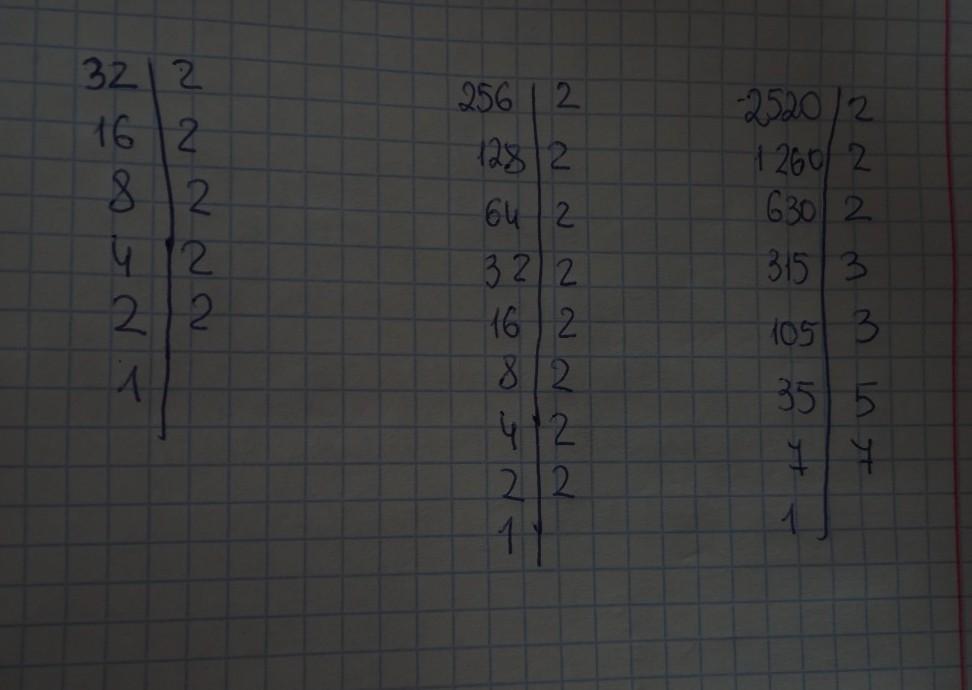 32 | 2
16 | 2
8 | 2
4 | 2
2 | 2
1 |
256 | 2
128 | 2
64 | 2
32 | 2
16 | 2
8 | 2
4 | 2
2 | 2
1 |
2520 | 2
1260 | 2
630 | 2
315 | 3
105 | 3
35 | 5
7 | 7
1 |